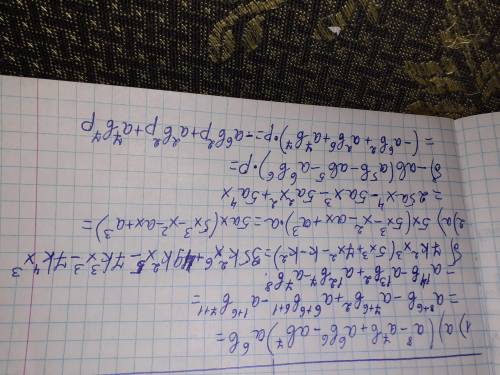 1) а) (a⁸ - a⁷b + a⁶b⁶ - ab⁷) a⁶b =
= a⁸⁺⁶b - a⁷⁺⁶b² + a⁶⁺⁶b⁶⁺¹ - a¹⁺⁶b⁷⁺¹ =
= a¹⁴b - a¹³b² + a¹²b⁷ - a⁷b⁸
б) 7k²x(5x³ + 7x² - k - k²) =
2) а) 5x(5x³ - x² - ax + a³)·a = 5ax(5x³ - x² - ax + a³) =
= 25ax⁴ - 5ax³ - 5a²x² + 5a⁴x
б) -ab(a⁵b - ab⁵ - a⁶b⁶)·p =
= (-a⁶b² + a²b⁶ + a⁷b⁷)·p = -a⁶b²p + a²b⁶p + a⁷b⁷p